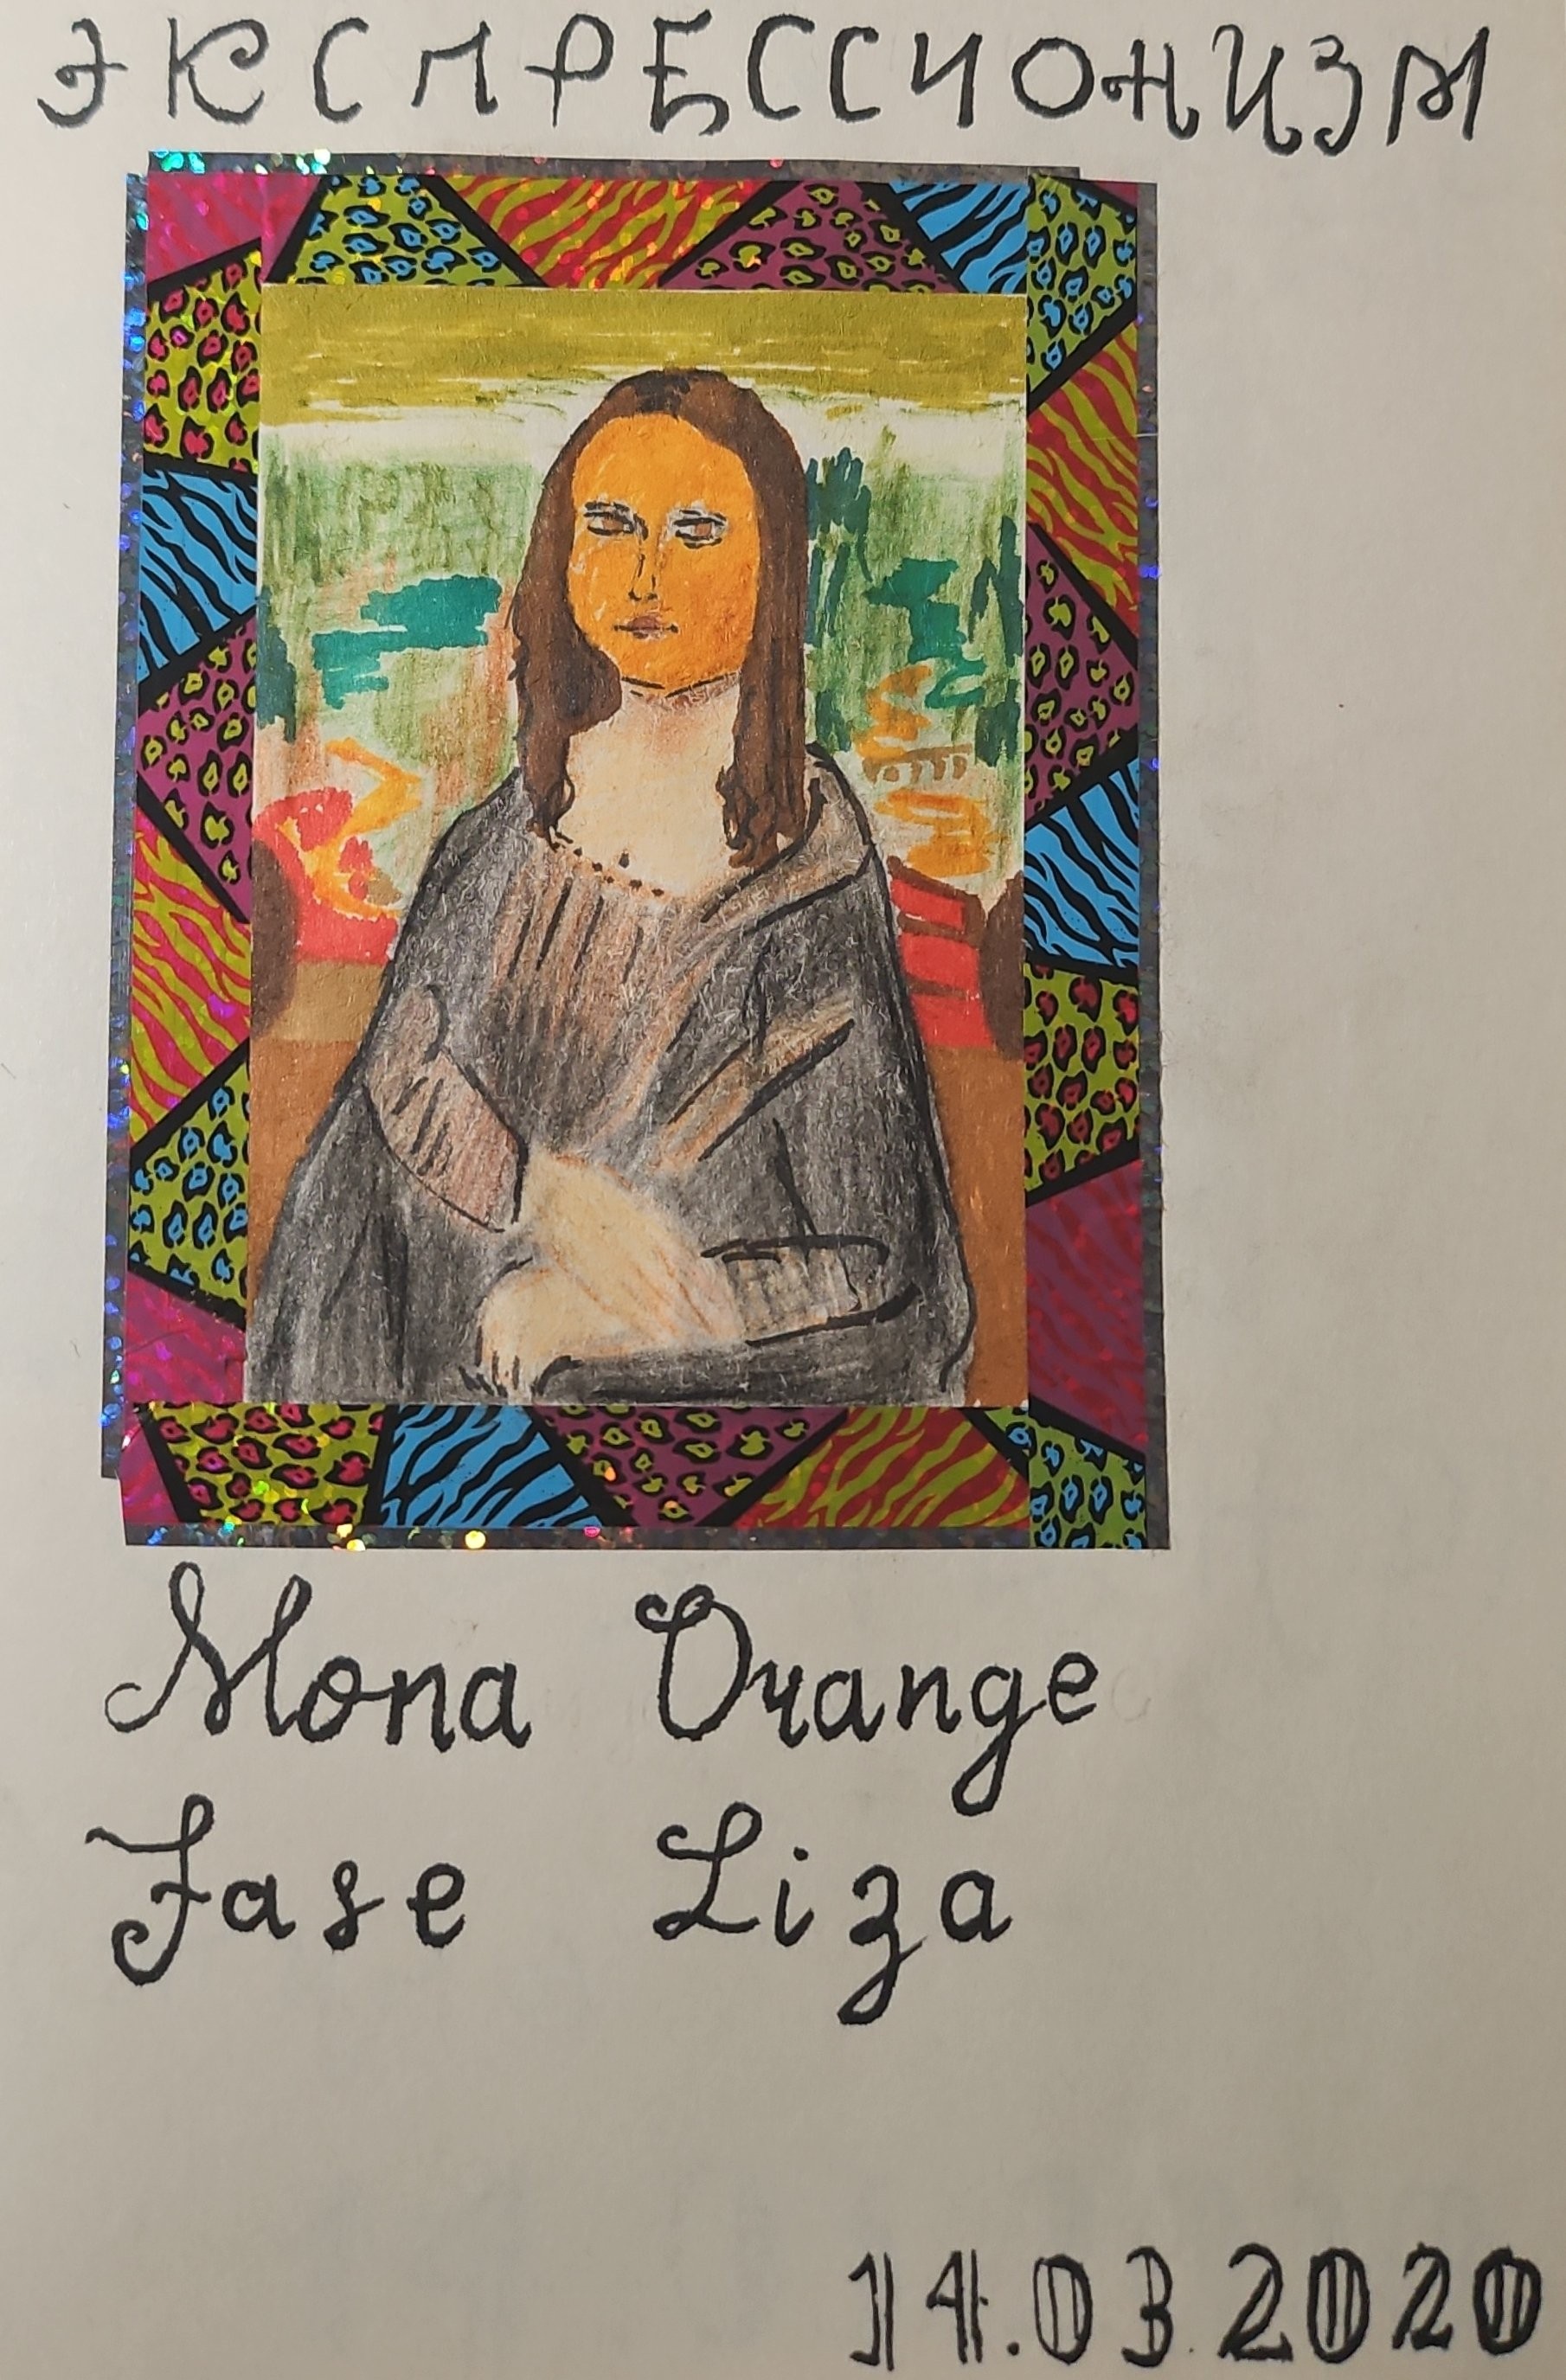 ЭКСПРЕССИОНИЗМ
Mona Orange
Fase Liza
14.03.2020